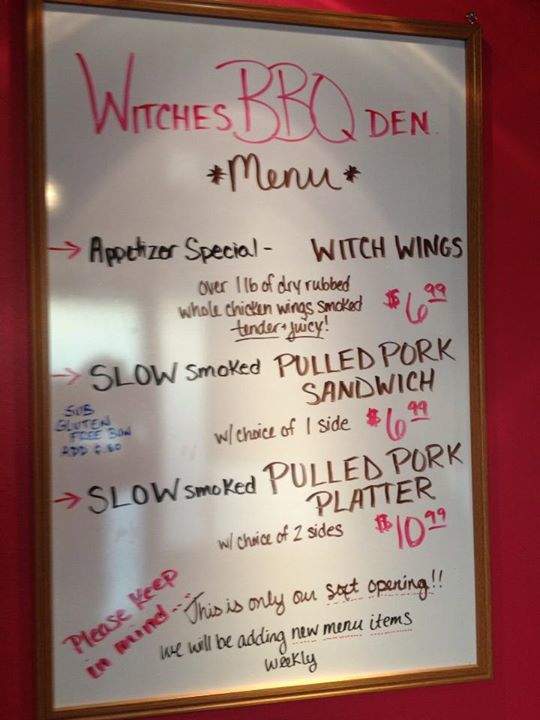 WITCHES BBQ DEN
*Menu*
→ Appetizer Special - WITCH WINGS
over 1 lb of dry rubbed
whole chicken wings smoked
tender + juicy!
$6.99
→ SLOW smoked PULLED PORK
SANDWICH
w/ choice of 1 side $6.99
SUB
GLUTEN
FREE BUN
ADD $.60
→ SLOW smoked PULLED PORK
PLATTER
w/ choice of 2 sides $10.99
Please Keep
in mind... This is only our soft opening!!
we will be adding new menu items
weekly